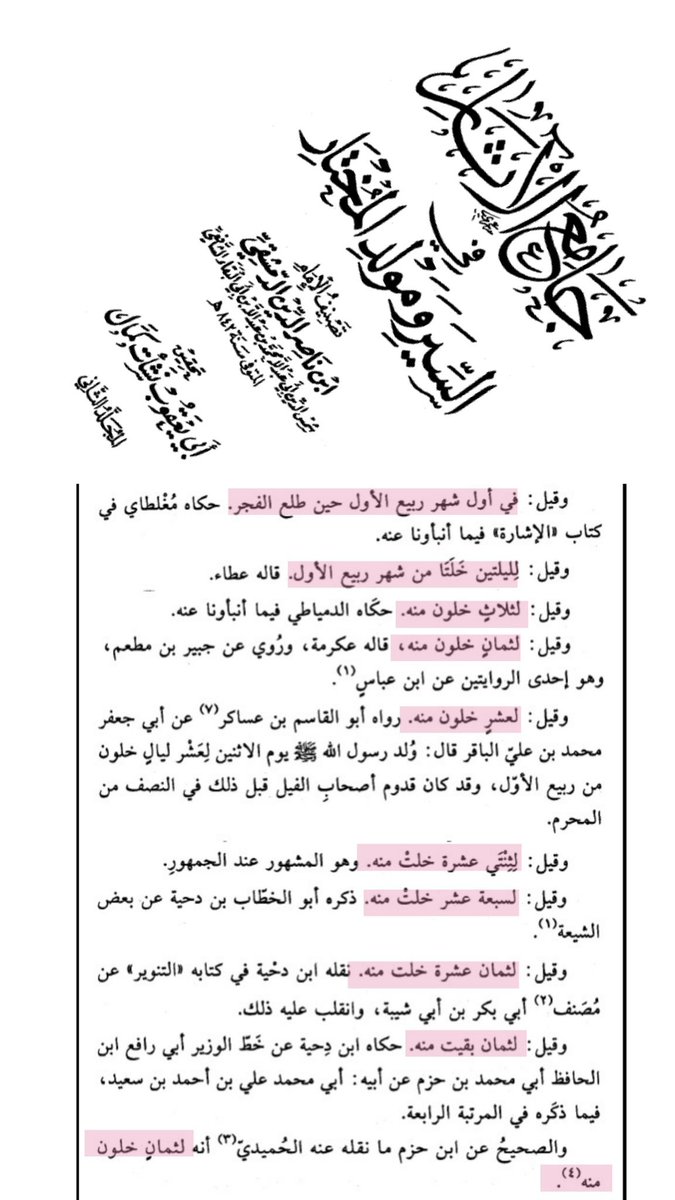 جَامِعُ الآثَارِ
في
السِّيَرِ وَمَوْلِدِ المُخْتَارِ
تصنيف الإمام
ابن ناصر الدين الدمشقي
المتوفى سنة ٨٤٢ هـ
تحقيق
أبي يعقوب نشأت كمال
المجلد الثاني
وقيل: في أول شهر ربيع الأول حين طلع الفجر. حكاه مُغْلطاي في
كتاب «الإشارة» فيما أنبأونا عنه.
وقيل: لِليلتين خَلَتَا من شهر ربيع الأول. قاله عطاء.
وقيل: لثلاثٍ خلون منه. حكَاه الدمياطي فيما أنبأونا عنه.
وقيل: لثمانٍ خلون منه، قاله عكرمة، ورُوي عن جبير بن مطعم،
وهو إحدى الروايتين عن ابن عباسٍ(١).
وقيل: لعشرٍ خلون منه. رواه أبو القاسم بن عساكر(٧) عن أبي جعفر
محمد بن عليّ الباقر قال: وُلد رسول الله ﷺ يوم الاثنين لِعَشْر ليالٍ خلون
من ربيع الأوّل، وقد كان قدوم أصحابِ الفيل قبل ذلك في النصف من
المحرم.
وقيل: لِثِنْتَي عشرة خلتْ منه. وهو المشهور عند الجمهورِ.
وقيل: لسبعة عشر خلتْ منه. ذكره أبو الخطّاب بن دحية عن بعض
الشيعة(١).
وقيل: لثمان عشرة خلت منه. نقله ابن دحْية في كتابه «التنوير» عن
مُصَنف(٢) أبي بكر بن أبي شيبة، وانقلب عليه ذلك.
وقيل: لثمان بقيت منه. حكاه ابن دِحية عن خَطّ الوزير أبي رافع ابن
الحافظ أبي محمد بن حزم عن أبيه: أبي محمد علي بن أحمد بن سعيد،
فيما ذكَره في المرتبة الرابعة.
والصحيحُ عن ابن حزم ما نقله عنه الحُميديّ(٣) أنه لثمانٍ خلون
منه(٤).